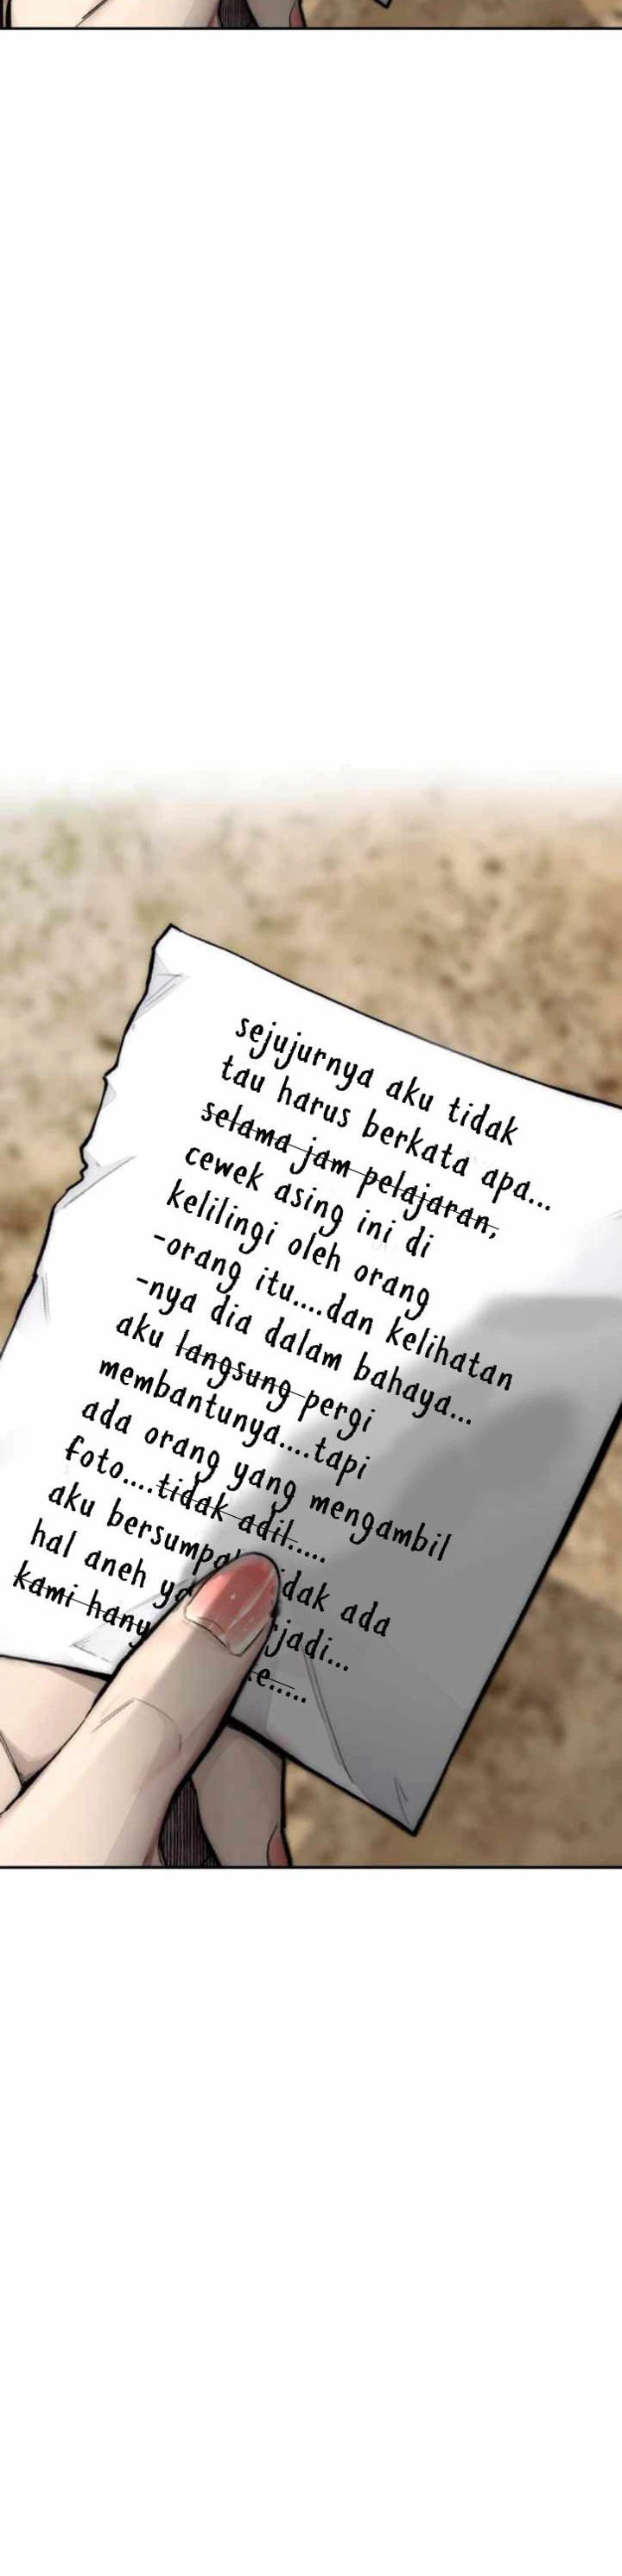 sejujurnya aku tidak
tau harus berkata apa...
selama jam pelajaran,
cewek asing ini di
kelilingi oleh orang
-orang itu....dan kelihatan
-nya dia dalam bahaya...
aku langsung pergi
membantunya....tapi
ada orang yang mengambil
foto....tidak adil.....
aku ada
hal aneh
kami